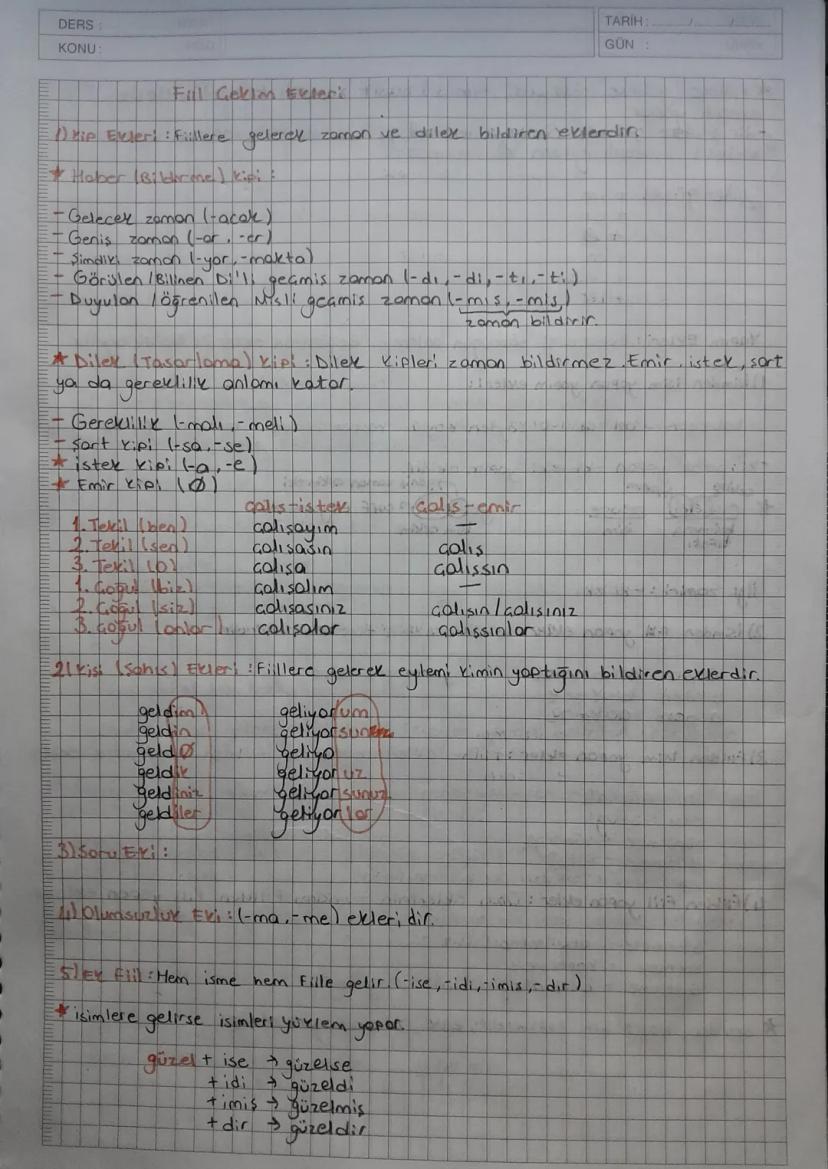 DERS :
TARİH : / /
KONU :
GÜN :
Fiil Çekim Ekleri
1) Kip Ekleri : Fiillere gelerek zaman ve dilek bildiren eklerdir.
* Haber (Bildirme) Kipi :
- Gelecek zaman (-acak)
- Geniş zaman (-ar, -er)
- Şimdiki zaman (-yor, -makta)
- Görülen/Bilinen Di'li geçmiş zaman (-dı, -di, -tı, -ti)
- Duyulan/öğrenilen Mişli geçmiş zaman (-mış, -miş)
zaman bildirir.
* Dilek (Tasarlama) Kipi : Dilek kipleri zaman bildirmez. Emir, istek, şart
ya da gereklilik anlamı katar.
- Gereklilik (-malı, -meli)
- Şart kipi (-sa, -se)
* istek kipi (-a, -e)
* Emir kipi (Ø)
çalış-istek çalış-emir
1. Tekil (ben) çalışayım —
2. Tekil (sen) çalışasın çalış
3. Tekil (o) çalışa çalışsın
1. Çoğul (biz) çalışalım —
2. Çoğul (siz) çalışasınız çalışın/çalışınız
3. çoğul (onlar) çalışalar çalışsınlar
2) Kişi (şahıs) Ekleri : Fiillere gelerek eylemi kimin yaptığını bildiren eklerdir.
geldim geliyorum
geldin geliyorsun
geldiØ geliyo
geldik geliyoruz
geldiniz geliyorsunuz
geldiler geliyorlar
3) Soru Eki :
4) Olumsuzluk Eki : (-ma, -me) ekleridir.
5) Ek Fiil : Hem isme hem fiile gelir. (-ise, -idi, -imiş, -dır)
* isimlere gelirse isimleri yüklem yapar.
güzel + ise → güzelse
+ idi → güzeldi
+ imiş → güzelmiş
+ dir → güzeldir